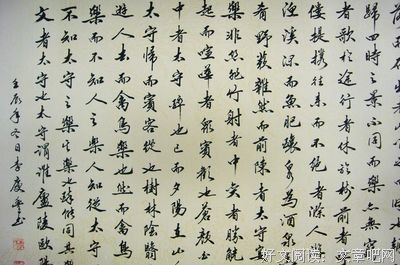 歸四時之景不同而樂亦無窮
者歌於途行者休於樹前者
僂提攜往來而不絕者滁人
漁溪深而魚肥釀泉為酒泉
肴野蔌雜然而前陳者太守
樂非絲非竹射者中弈者勝觥
起而諠譁者眾賓歡也蒼顏
中者太守醉也已而夕陽在山
太守歸而賓客從也樹林陰翳
遊人去而禽鳥樂也然而禽鳥
樂而不知人之樂人知從太守
不知太守之樂其樂也醉能同其
文者太守也太守謂誰廬陵歐陽
壬辰年冬日李慶
好文阅读：文章吧网